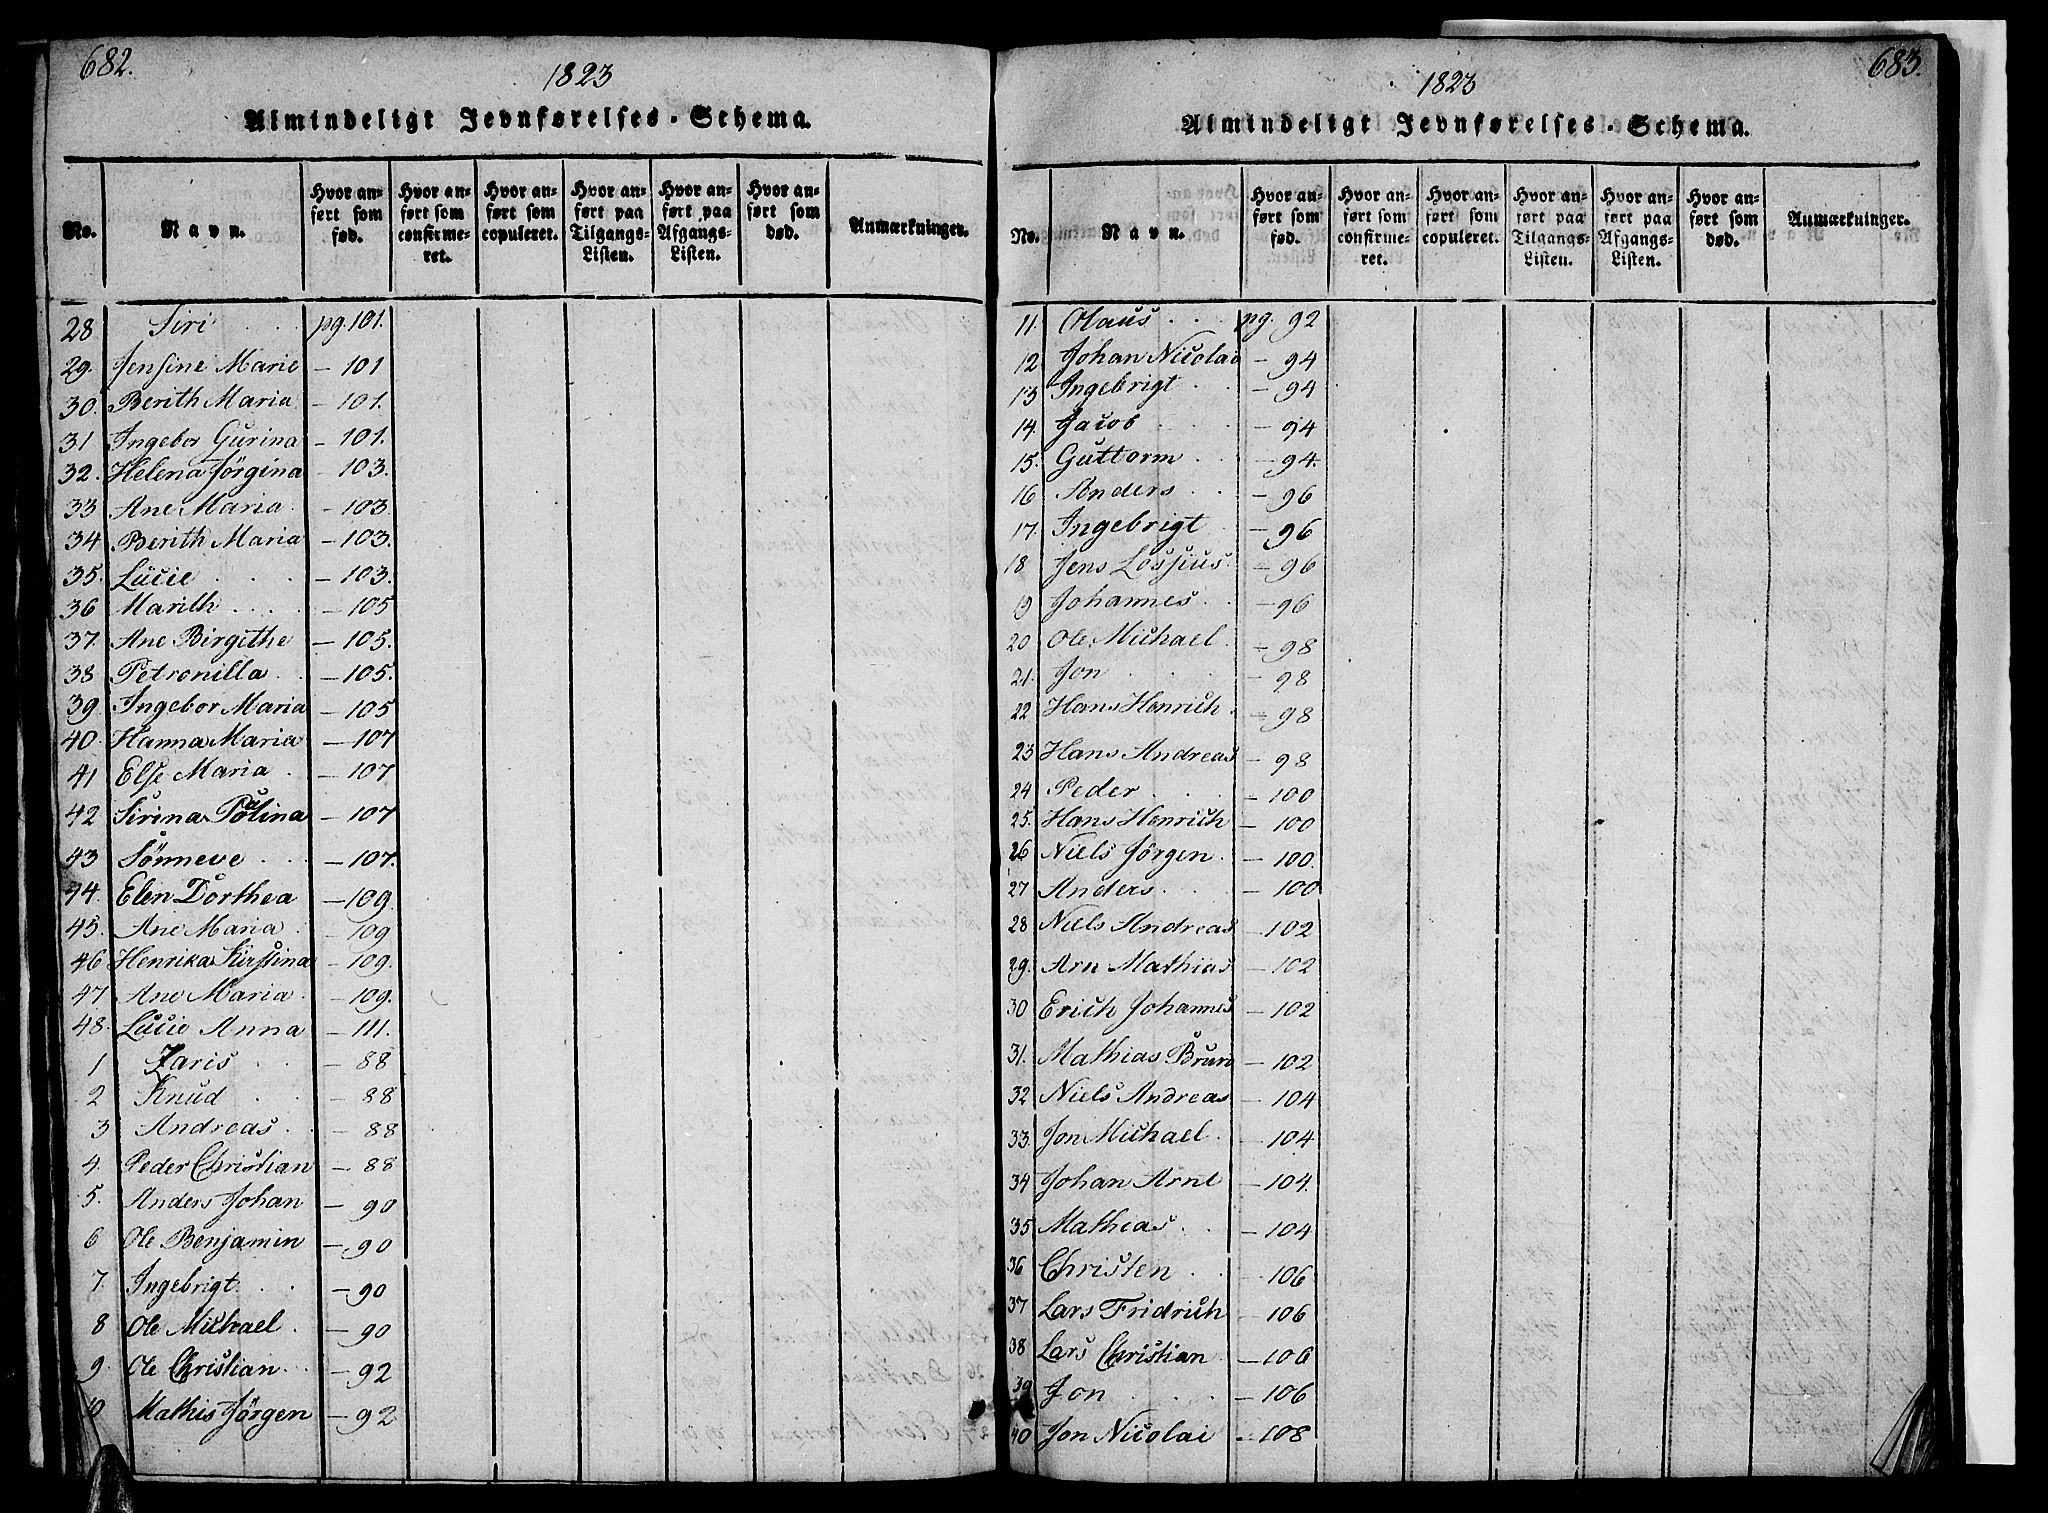 682.
1823
Almindeligt Jevnførelses-Schema.
No. Navn. Hvor anført som fød. Hvor anført som confirmeret. Hvor anført som copuleret. Hvor anført paa Tilgangs-Listen. Hvor anført paa Afgangs-Listen. Hvor anført som død. Anmærkninger.
28 Siri pg. 101.
29. Jensine Marie — 101
30. Berith Maria — 101.
31 Ingebor Gurina — 101.
32. Helena Jørgina — 103.
33 Ane Maria — 103.
34 Berith Maria — 103.
35. Lucie — 103.
36 Marith — 105
37. Ane Birgithe — 105.
38 Petronilla — 105.
39 Ingebor Maria — 105
40. Hanna Maria — 107
41 Else Maria — 107
42 Sirina Polina — 107
43 Sønneve — 107.
44. Elen Dorthea — 109.
45. Ane Maria — 109
46 Henrika Kirstina — 109.
47 Ane Maria — 109.
48. Lucie Anna — 111.
1 Zaris — 88
2 Knud — 88
3 Andreas — 88
4. Peder Christian — 88
5. Anders Johan — 90
6 Ole Benjamin — 90
7. Ingebrigt — 90
8 Ole Michael — 90
9. Ole Christian — 92
10 Mathis Jørgen — 92
683.
1823
Almindeligt Jevnførelses-Schema.
No. Navn. Hvor anført som fød. Hvor anført som confirmeret. Hvor anført som copuleret. Hvor anført paa Tilgangs-Listen. Hvor anført paa Afgangs-Listen. Hvor anført som død. Anmærkninger.
11. Olaus pg. 92
12 Johan Nicolai — 94
13 Ingebrigt — 94
14. Jacob — 94
15. Guttorm — 94.
16 Anders — 96
17. Ingebrigt — 96
18 Jens Lossius — 96
19 Johannes — 96
20 Ole Michael — 98
21. Jon — 98
22 Hans Henrich — 98
23 Hans Andreas — 98
24 Peder — 100
25. Hans Henrich — 100
26 Niels Jørgen — 100.
27 Anders — 100
28 Niels Andreas — 102
29. Arn Mathias — 102
30 Erich Johannes — 102
31. Mathias Brun — 102
32 Niels Andreas — 104
33. Jon Michael — 104
34 Johan Arnt — 104.
35 Mathias — 104
36 Christen — 106
37 Lars Fridrich — 106
38 Lars Christian — 106
39 Jon — 106
40 Jon Nicolai — 108